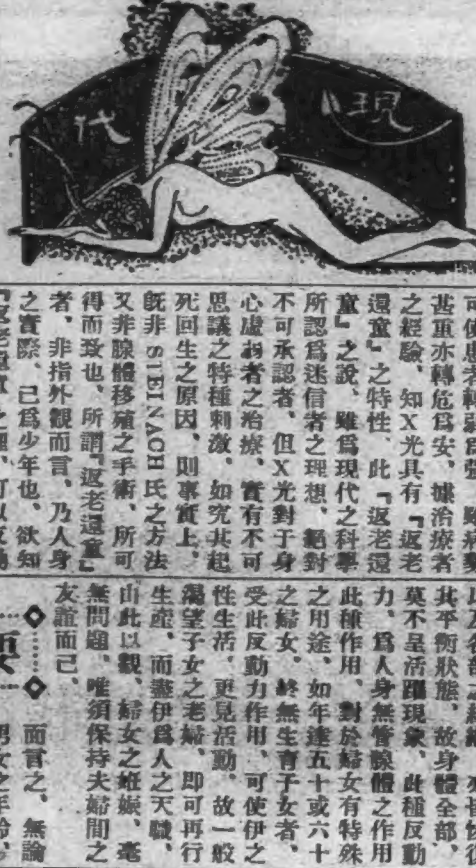 現代
甚重亦轉危爲安、據治療者
之經驗、知X光具有『返老
還童』之特性、此『返老還
童』之說、雖爲現代之科學
所認爲迷信者之理想、絕對
不可承認者、但X光對于身
心虛弱者之治療、實有不可
思議之特種刺激、如究其起
死回生之原因、則事實上、
旣非STEINACH氏之方法
又非腺體移殖之手術、所可
得而致也、所謂『返老還童』
者、非指外觀而言、乃人身
之實際、已爲少年也、欲知
其平衡狀態、故身體全部、
莫不呈活躍現象、此種反動
力、爲人身無管腺體之作用
此種作用、對於婦女有特殊
之用途、如年達五十或六十
之婦女、終無生育子女者、
受此反動力作用、可使伊之
性生活、更見活動、故一般
渴望子女之老婦、卽可再行
生產、而盡伊爲人之天職、
由此以觀、婦女之姙娠、毫
無問題、唯須保持夫婦間之
友誼而已、
而言之、無論
男女之年齡、